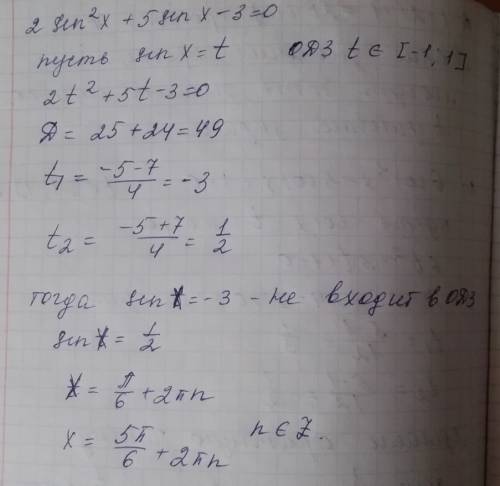 2 sin²x + 5 sin x - 3 = 0
пусть sin x = t ОДЗ t ∈ [-1; 1]
2t² + 5t - 3 = 0
Д = 25 + 24 = 49
t₁ = (-5 - 7)/4 = -3
t₂ = (-5 + 7)/4 = 1/2
тогда sin x = -3 - не входит в ОДЗ
sin x = 1/2
x = π/6 + 2πn
x = 5π/6 + 2πn n ∈ Z.